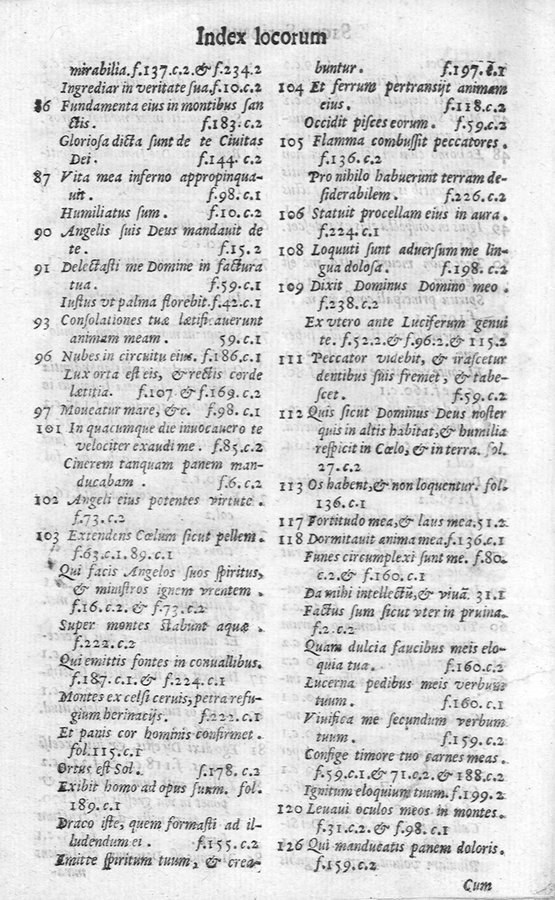 Index locorum
mirabilia. f.137.c.2. & f.234.2
Ingrediar in veritate sua. f.10.c.2
86 Fundamenta eius in montibus san
ctis. f.183.c.2
Gloriosa dicta sunt de te Ciuitas
Dei. f.144.c.2
87 Vita mea inferno appropinqua-
uit. f.98.c.1
Humiliatus sum. f.10.c.2
90 Angelis suis Deus mandauit de
te. f.15.2
91 Delectasti me Domine in factura
tua. f.59.c.1
Iustus vt palma florebit. f.42.c.1
93 Consolationes tuæ lætificauerunt
animam meam. 59.c.1
96 Nubes in circuitu eius. f.186.c.1
Lux orta est eis, & rectis corde
lætitia. f.107. & f.169.c.2
97 Moueatur mare, &c. f.98.c.1
101 In quacumque die inuocauero te
velociter exaudi me. f.85.c.2
Cinerem tanquam panem man-
ducabam. f.6.c.2
102 Angeli eius potentes virtute.
f.73.c.2
103 Extendens Cœlum sicut pellem.
f.63.c.1.89.c.1
Qui facis Angelos suos spiritus,
& ministros ignem vrentem.
f.16.c.2. & f.73.c.2
Super montes stabunt aquæ.
f.222.c.2
Qui emittis fontes in conuallibus.
f.187.c.1. & f.224.c.1
Montes excelsi ceruis, petra refu-
gium herinacijs. f.222.c.1
Et panis cor hominis confirmet.
fol.115.c.1
Ortus est Sol. f.178.c.2
Exibit homo ad opus suum. fol.
189.c.1
Draco iste, quem formasti ad il-
ludendum ei. f.155.c.2
Emitte spiritum tuum, & crea-
buntur. f.197.c.1
104 Et ferrum pertransijt animam
eius. f.118.c.2
Occidit pisces eorum. f.59.c.2
105 Flamma combussit peccatores.
f.136.c.2
Pro nihilo habuerunt terram de-
siderabilem. f.226.c.2
106 Statuit procellam eius in aura.
f.224.c.1
108 Loquuti sunt aduersum me lin-
gua dolosa. f.198.c.2
109 Dixit Dominus Domino meo.
f.238.c.2
Ex vtero ante Luciferum genui
te. f.52.2. & f.96.2. & 115.2
111 Peccator videbit, & irascetur
dentibus suis fremet, & tabe-
scet. f.59.c.2
112 Quis sicut Dominus Deus noster
quis in altis habitat, & humilia
respicit in Cœlo, & in terra. fol.
27.c.2
113 Os habent, & non loquentur. fol.
136.c.1
117 Fortitudo mea, & laus mea. 51.2
118 Dormitauit anima mea. f.136.c.1
Funes circumplexi sunt me. f.80.
c.2. & f.160.c.1
Da mihi intellectũ, & viuã. 31.1
Factus sum sicut vter in pruina.
f.2.c.2
Quam dulcia faucibus meis elo-
quia tua. f.160.c.2
Lucerna pedibus meis verbum
tuum. f.160.c.1
Viuifica me secundum verbum
tuum. f.159.c.2
Confige timore tuo carnes meas.
f.59.c.1. & 71.c.2. & 188.c.2
Ignitum eloquium tuum. f.199.2
120 Leuaui oculos meos in montes.
f.31.c.2. & f.98.c.1
126 Qui manducatis panem doloris.
f.159.c.2
Cum